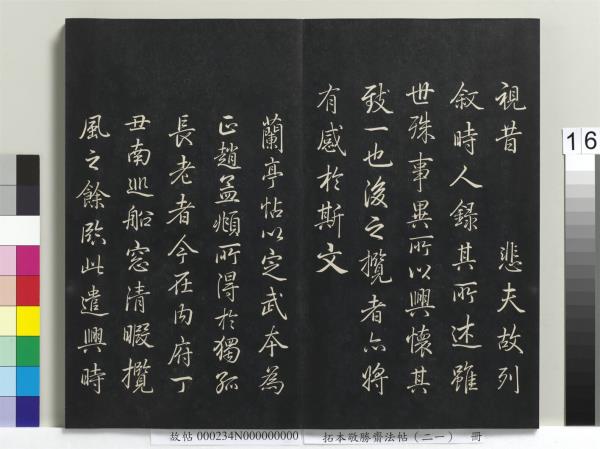 視昔　悲夫故列
叙時人録其所述雖
世殊事異所以興懷其
致一也後之攬者亦將
有感於斯文
蘭亭帖以定武本為
正趙孟頫所得於獨孤
長老者今在内府丁
丑南巡船窓清暇攬
風之餘臨此遣興時
16
故帖 000234N000000000　拓本敬勝齋法帖（二一）　冊